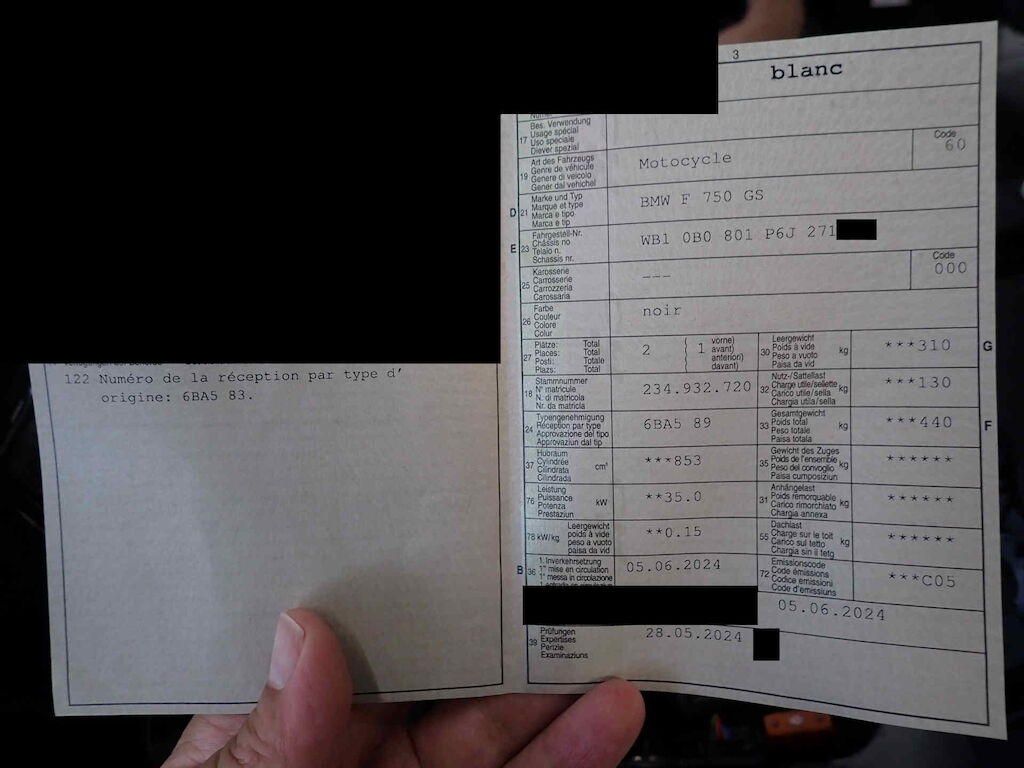 122 Numéro de la réception par type d'
origine: 6BA5 83.
3
blanc
17 Bes. Verwendung
Usage spécial
Uso speciale
Diever spezial
19 Art des Fahrzeugs
Genre de véhicule
Genere di veicolo
Gener dal vehichel
Motocycle
Code
60
D 21 Marke und Typ
Marque et type
Marca e tipo
Marca e tip
BMW F 750 GS
E 23 Fahrgestell-Nr.
Châssis no
Telaio n.
Schassis nr.
WB1 0B0 801 P6J 271
25 Karosserie
Carrosserie
Carrozzeria
Carossaria
---
Code
000
26 Farbe
Couleur
Colore
Colur
noir
27 Plätze: Total
Places: Total
Posti: Totale
Plazs: Total
2 ( 1 vorne)
avant)
anteriori)
davant)
30 Leergewicht
Poids à vide
Peso a vuoto
Paisa da vid
kg
***310
G
18 Stammnummer
N° matricule
N. di matricola
Nr. da matricla
234.932.720
32 Nutz-/Sattellast
Charge utile/sellette
Carico utile/sella
Chargia utila/sella
kg
***130
24 Typengenehmigung
Réception par type
Approvazione del tipo
Approvaziun dal tip
6BA5 89
33 Gesamtgewicht
Poids total
Peso totale
Paisa totala
kg
***440
F
37 Hubraum
Cylindrée
Cilindrata
Cilindrada
cm³
***853
35 Gewicht des Zuges
Poids de l'ensemble
Peso del convoglio
Paisa cumposiziun
kg
******
76 Leistung
Puissance
Potenza
Prestaziun
kW
**35.0
31 Anhängelast
Poids remorquable
Carico rimorchiato
Chargia annexa
kg
******
78 kW/kg Leergewicht
poids à vide
peso a vuoto
paisa da vid
**0.15
55 Dachlast
Charge sur le toit
Carico sul tetto
Chargia sin il tetg
kg
******
B 36 1. Inverkehrsetzung
1re mise en circulation
1a messa in circolazione
05.06.2024
72 Emissionscode
Code émissions
Codice emissioni
Code d'emissiuns
***C05
05.06.2024
39 Prüfungen
Expertises
Perizie
Examinaziuns
28.05.2024